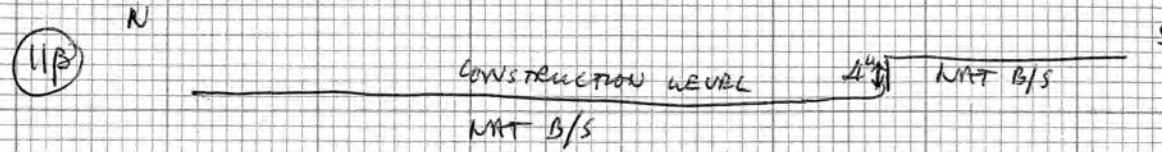 N
11β
CONSTRUCTION LEVEL 4" NAT B/S
NAT B/S